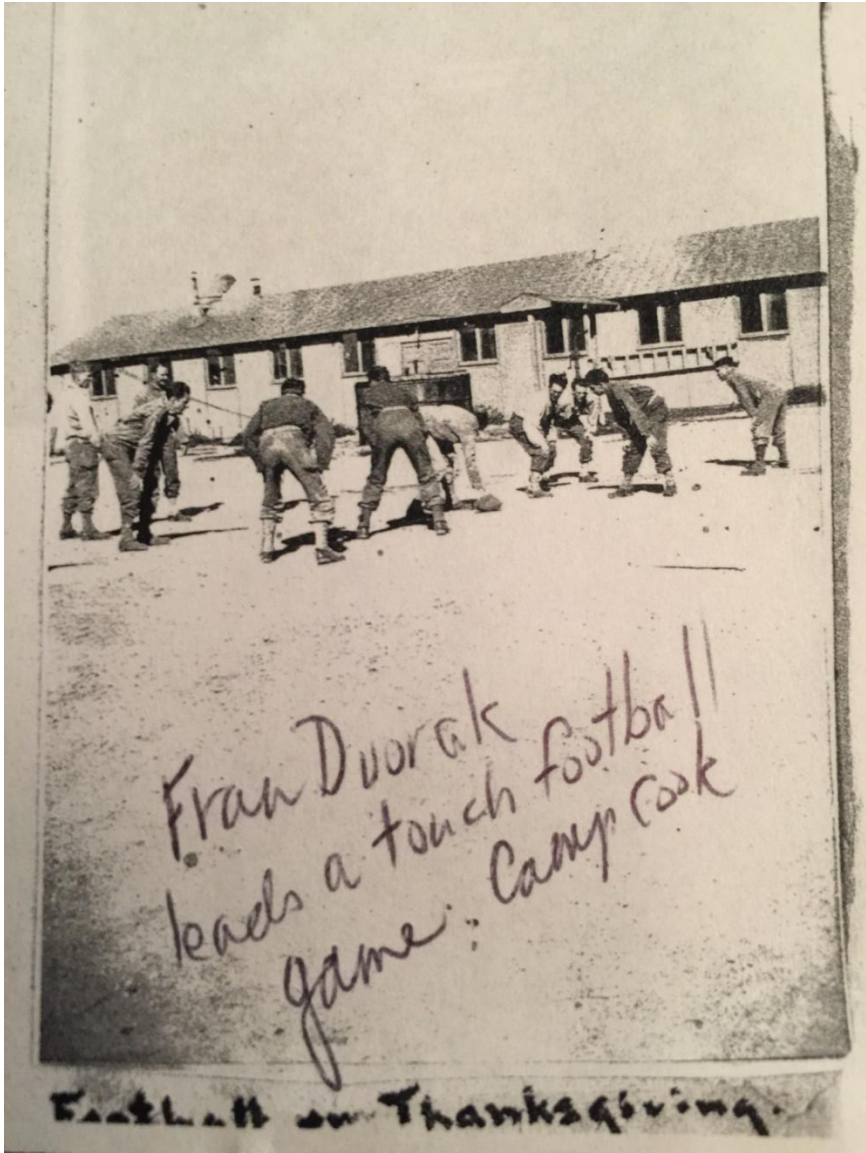 Fran Dvorak
leads a touch football
game. Camp Cook
Football on Thanksgiving.